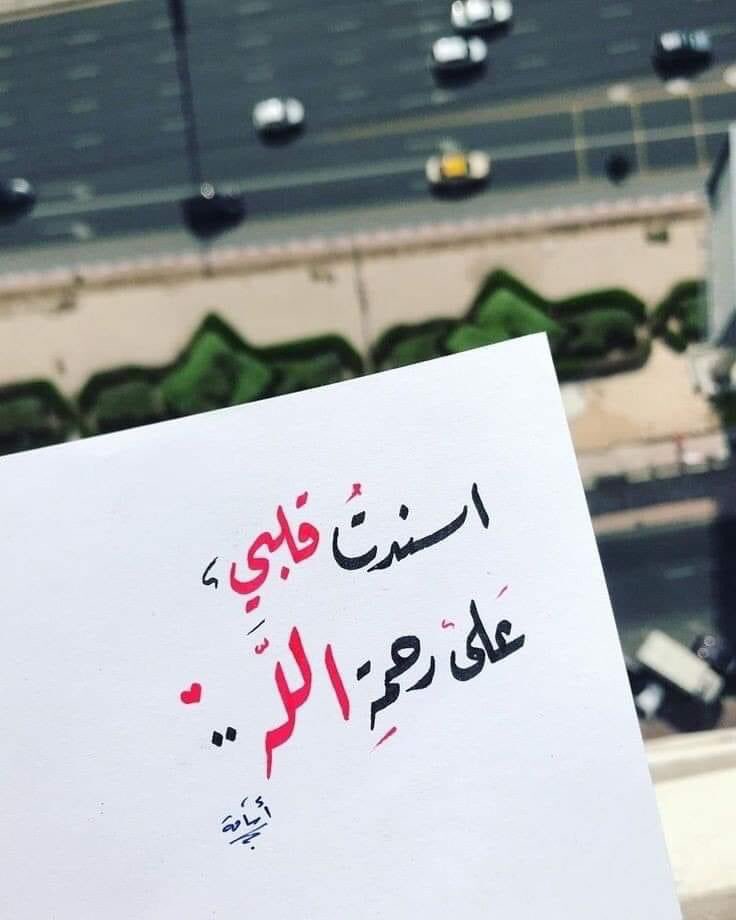 اسندتُ قلبي،
عَلى رحمةِ اللَّه..
أسامة